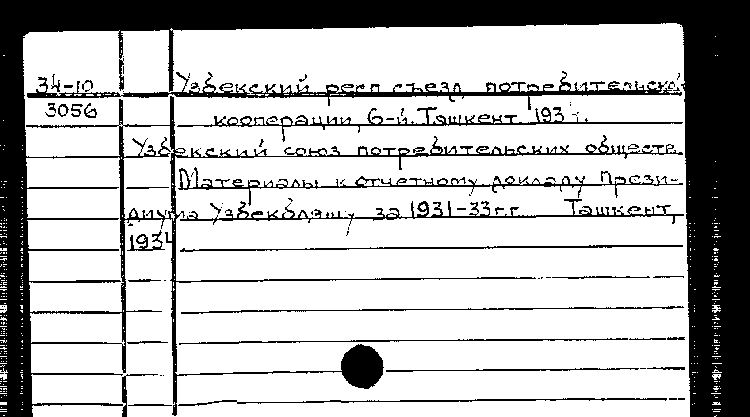 34-10 Узбекский респ съезд потребительской
3056 кооперации, 6-й. Ташкент. 193
Узбекский союз потребительских обществ.
Материалы к отчетному докладу Прези-
диума за 1931-33 г.г. Ташкент,
1934